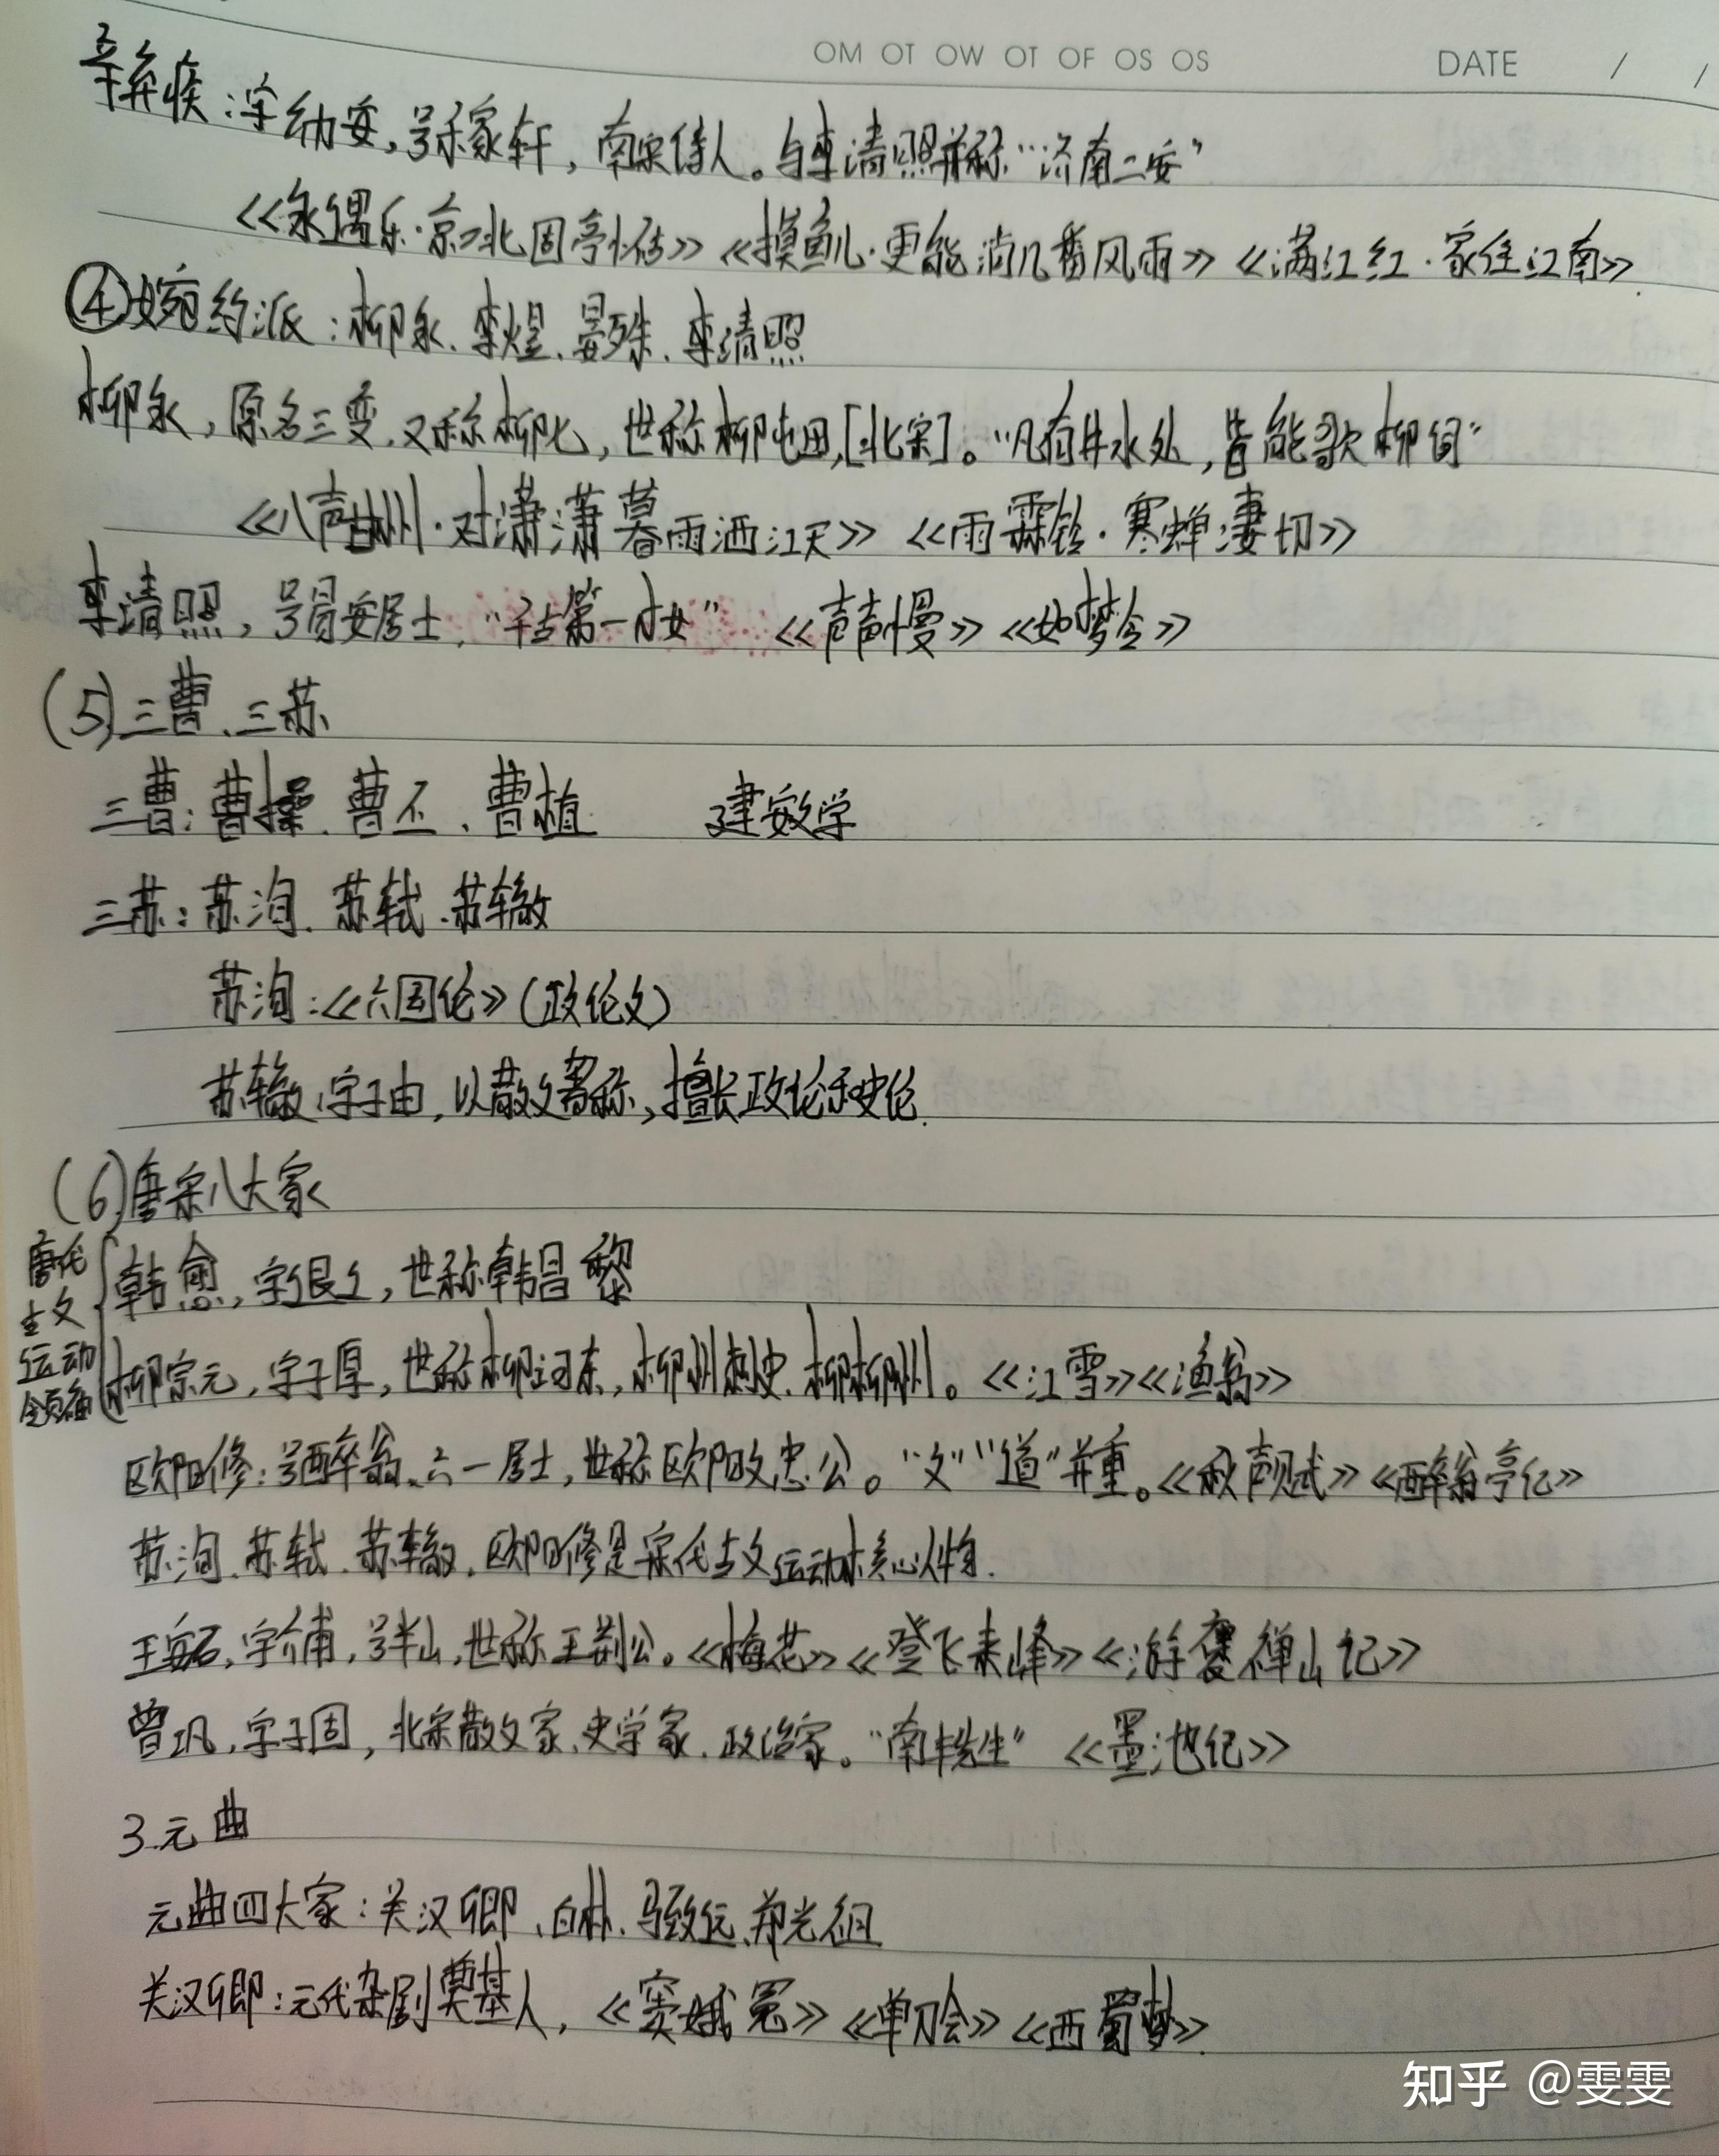 OM OT OW OT OF OS OS DATE / /
辛弃疾:字幼安,号稼轩,南宋诗人。与李清照并称“济南二安”
《永遇乐·京口北固亭怀古》《摸鱼儿·更能消几番风雨》《满江红·家住江南》
④婉约派:柳永、李煜、晏殊、李清照
柳永,原名三变,又称柳七,世称柳屯田,[北宋]。“凡有井水处,皆能歌柳词”
《八声甘州·对潇潇暮雨洒江天》《雨霖铃·寒蝉凄切》
李清照,号易安居士,“千古第一才女” 《声声慢》《如梦令》
(5)三曹、三苏
三曹:曹操、曹丕、曹植 建安文学
三苏:苏洵、苏轼、苏辙
苏洵:《六国论》(政论文)
苏辙,字子由,以散文著称,擅长政论和史论.
(6)唐宋八大家
唐代古文运动领袖
韩愈,字退之,世称韩昌黎
柳宗元,字子厚,世称柳河东,柳州刺史、柳柳州。《江雪》《渔翁》
欧阳修:号醉翁、六一居士,世称欧阳文忠公。“文”“道”并重。《秋声赋》《醉翁亭记》
苏洵、苏轼、苏辙、欧阳修是宋代古文运动核心人物.
王安石,字介甫,号半山,世称王荆公。《梅花》《登飞来峰》《游褒禅山记》
曾巩,字子固,北宋散文家、史学家、政治家。“南丰先生” 《墨池记》
3.元曲
元曲四大家:关汉卿、白朴、马致远、郑光祖
关汉卿:元代杂剧奠基人,《窦娥冤》《单刀会》《西蜀梦》.
知乎 @雯雯